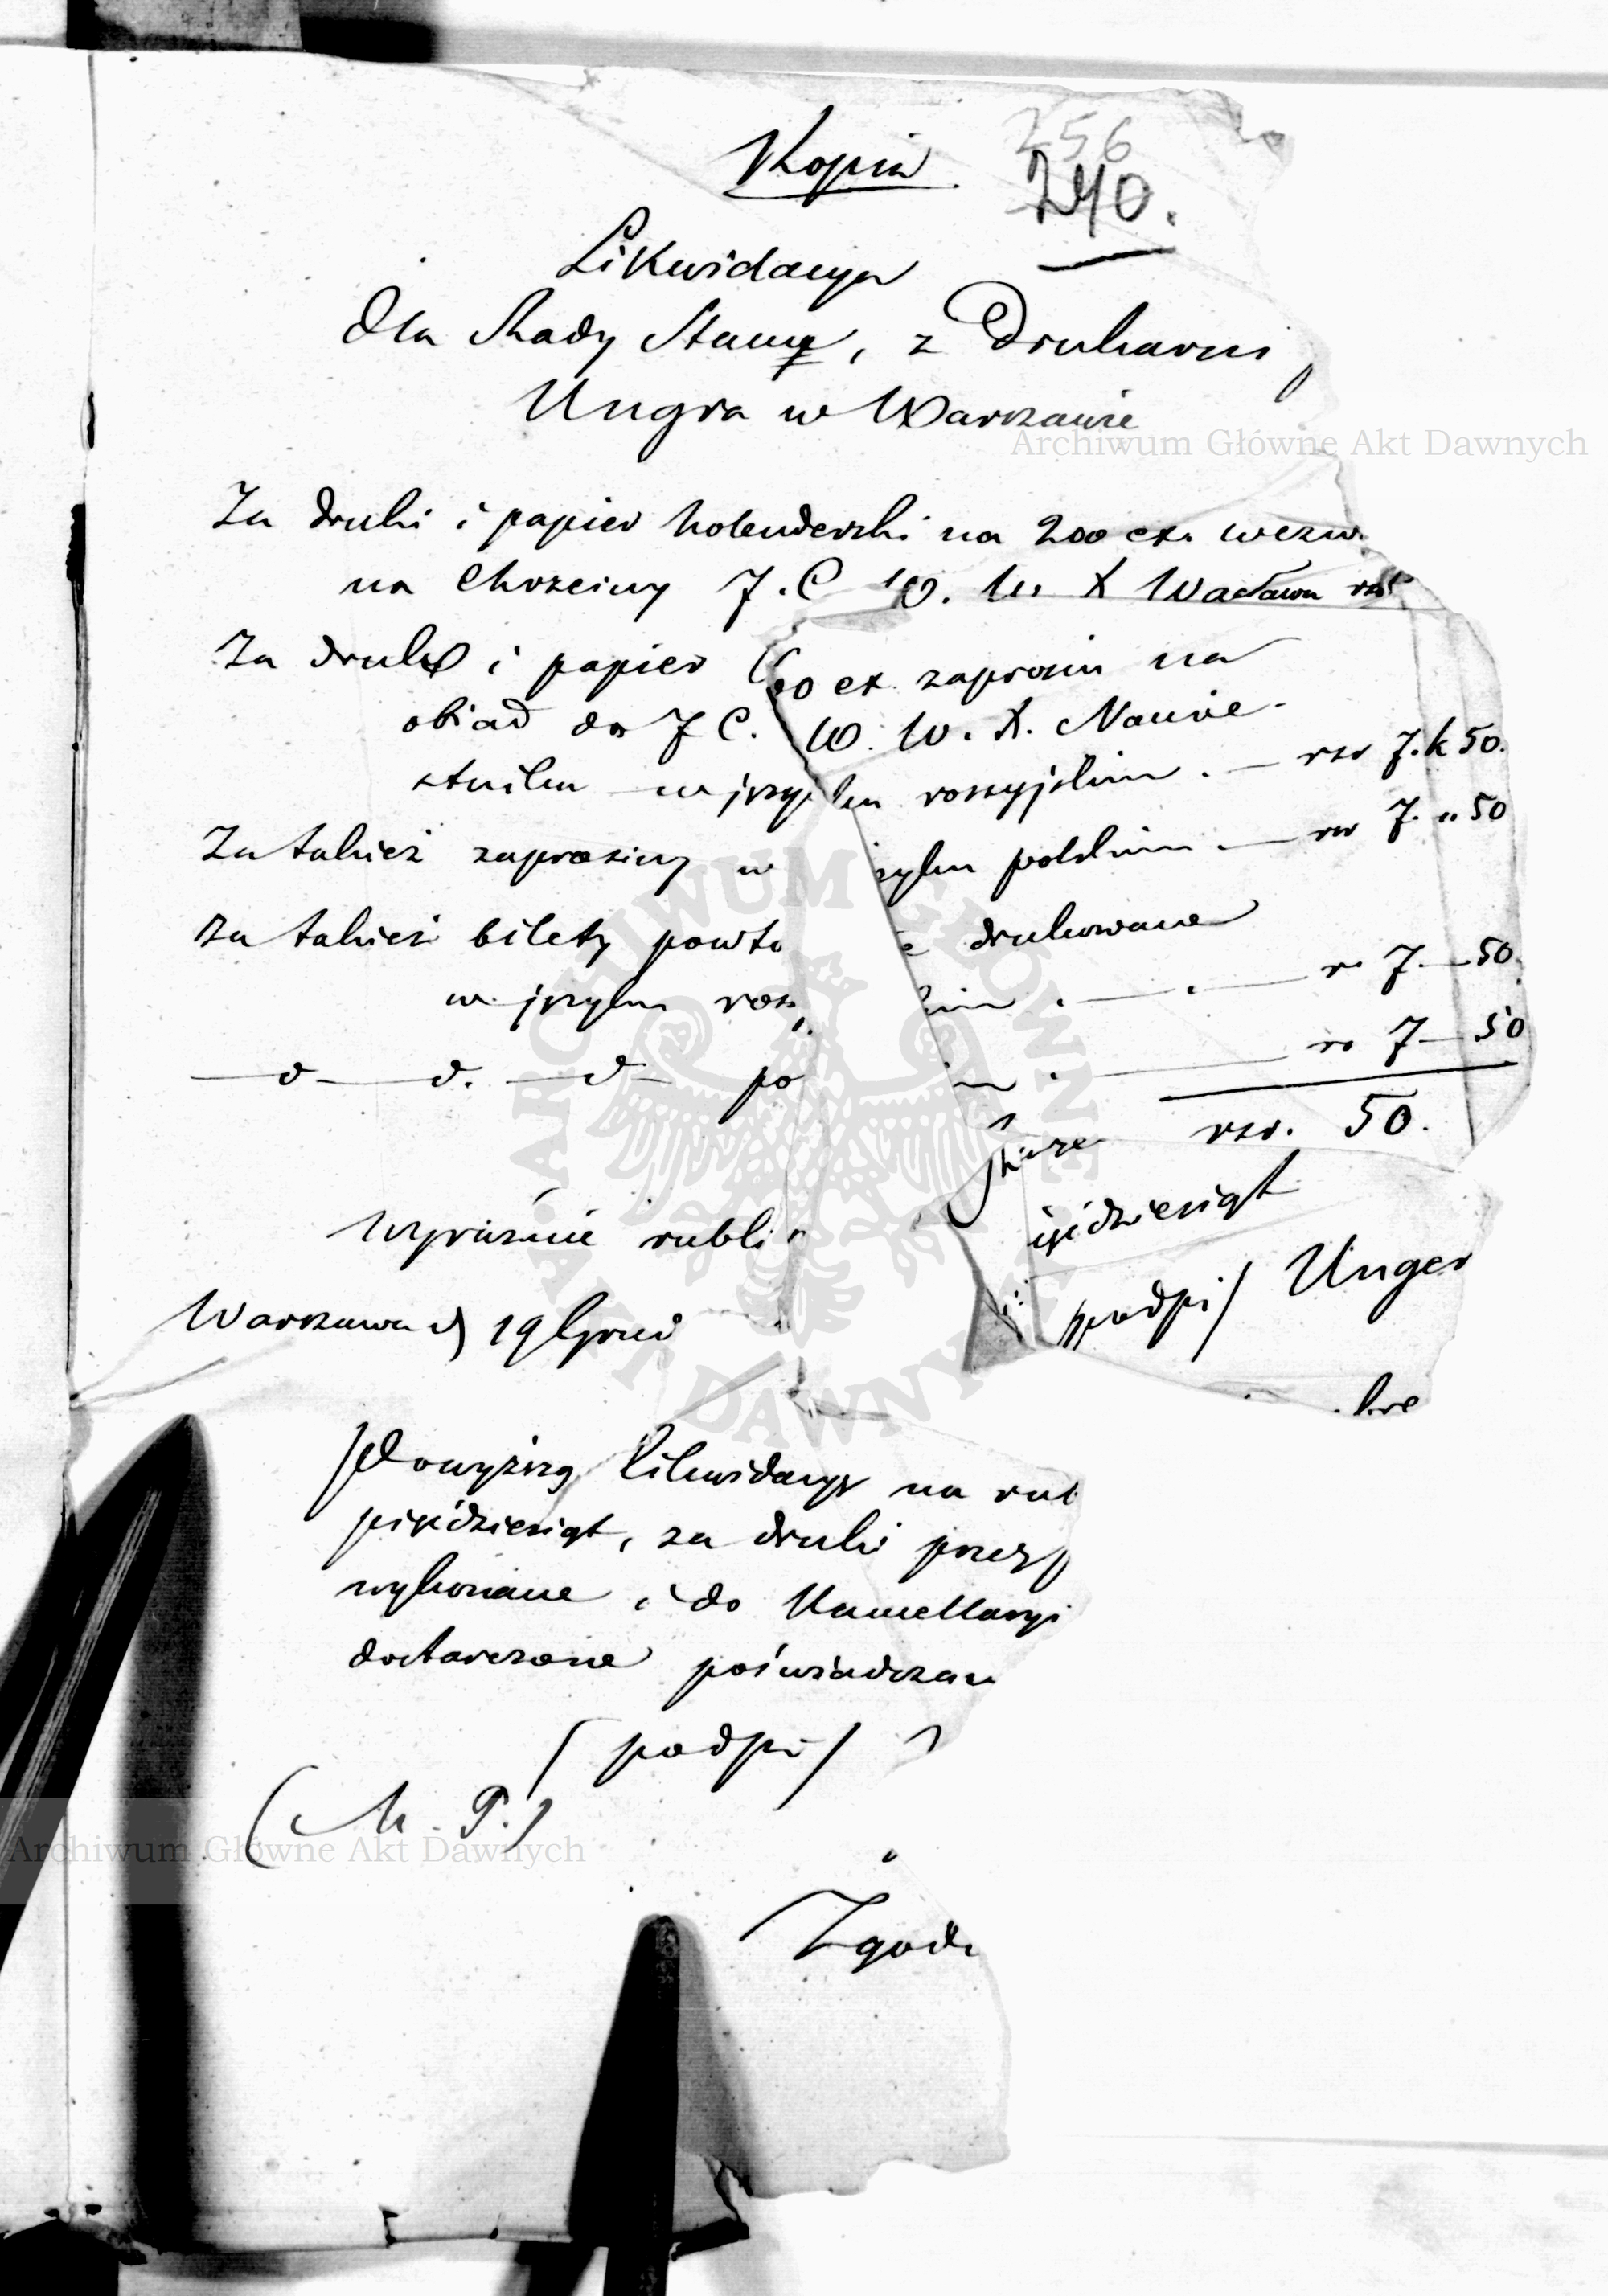 Kopia
256
240.
Likwidacya
dla Rady Stanu, z Drukarni
Ungra w Warszawie
Archiwum Główne Akt Dawnych
Za druki i papier holenderski na 200 ex. wezw.
na Chrzciny J. C W. W. X Wacława rsr
Za druk i papier 60 ex zaprosin na
obiad do J C. W. W. X. Namie-
stnika w języku rossyjskim . — rsr 7. k 50.
Za takież zaprosiny w zyku polskim . — rsr 7. " 50
Za takież bilety powto e drukowane
w języku ross kim . — . — rs 7. — 50.
— d — d. — d — po im . — rs 7 — 50
rsr. 50.
Wyraźnie rubli ięćdziesiąt
/podpi/ Unger
Warszawa d 19 Grud
kre
Powyższą likwidacyę na rub
pięćdziesiąt, za druki przez
wykonane i do Kancellaryi
dostarczone poświadczam
/podpi/
(M. P.)
Archiwum Główne Akt Dawnych
Zgod
ARCHIWUM GŁÓWNE AKT DAWNYCH